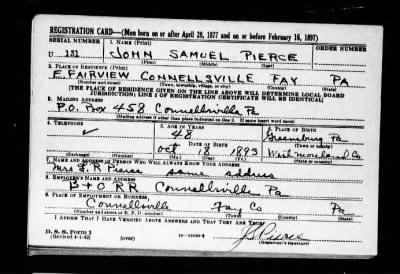 REGISTRATION CARD—(Men born on or after April 28, 1877 and on or before February 16, 1897)
SERIAL NUMBER 1. NAME (Print) ORDER NUMBER
U 131 JOHN SAMUEL PIERCE
(First) (Middle) (Last)
2. PLACE OF RESIDENCE (Print)
E. FAIRVIEW CONNELLSVILLE FAY PA
(Number and street) (Town, township, village, or city) (County) (State)
[THE PLACE OF RESIDENCE GIVEN ON THE LINE ABOVE WILL DETERMINE LOCAL BOARD
JURISDICTION; LINE 2 OF REGISTRATION CERTIFICATE WILL BE IDENTICAL]
3. MAILING ADDRESS
P.O. Box 458 Connellsville Pa
[Mailing address if other than place indicated on line 2. If same insert word same]
4. TELEPHONE 5. AGE IN YEARS 6. PLACE OF BIRTH
48 Greensburg Pa
DATE OF BIRTH (Town or county)
Oct 18 1893 Westmoreland Co
(Exchange) (Number) (Mo.) (Day) (Yr.) (State or country)
7. NAME AND ADDRESS OF PERSON WHO WILL ALWAYS KNOW YOUR ADDRESS
Mrs Pierce same address
8. EMPLOYER'S NAME AND ADDRESS
B + O RR Connellsville Pa
9. PLACE OF EMPLOYMENT OR BUSINESS
Connellsville Fay Co Pa
(Number and street or R. F. D. number) (Town) (County) (State)
I AFFIRM THAT I HAVE VERIFIED ABOVE ANSWERS AND THAT THEY ARE TRUE.
D. S. S. Form 1
(Revised 4-1-42) (over) Pierce
(Registrant's signature)